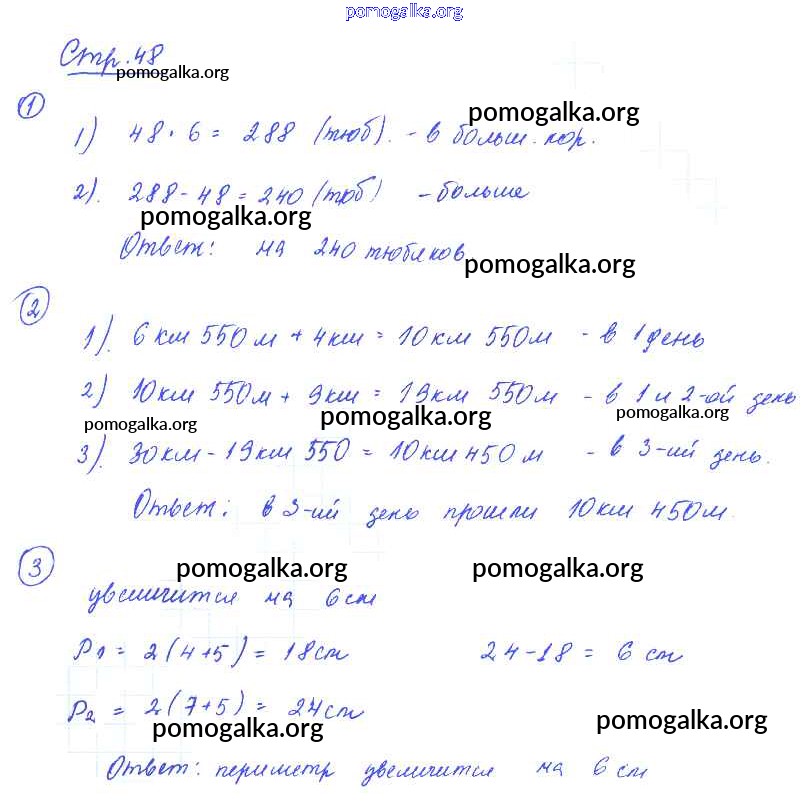 pomogalka.org
Стр. 48
pomogalka.org
1
pomogalka.org
1) 48 · 6 = 288 (тюб). - в больш. кор.
2). 288 - 48 = 240 (тюб) - больше
pomogalka.org
Ответ: на 240 тюбиков
pomogalka.org
2
1). 6 км 550 м + 4 км = 10 км 550 м - в 1 день
2) 10 км 550 м + 9 км = 19 км 550 м - в 1 и 2-ой день
pomogalka.org pomogalka.org pomogalka.org
3). 30 км - 19 км 550 = 10 км 450 м - в 3-ий день.
Ответ: в 3-ий день прошли 10 км 450 м.
3
pomogalka.org pomogalka.org
увеличится на 6 см
P1 = 2(4+5) = 18 см 24 - 18 = 6 см
P2 = 2(7+5) = 24 см
pomogalka.org pomogalka.org
Ответ: периметр увеличится на 6 см